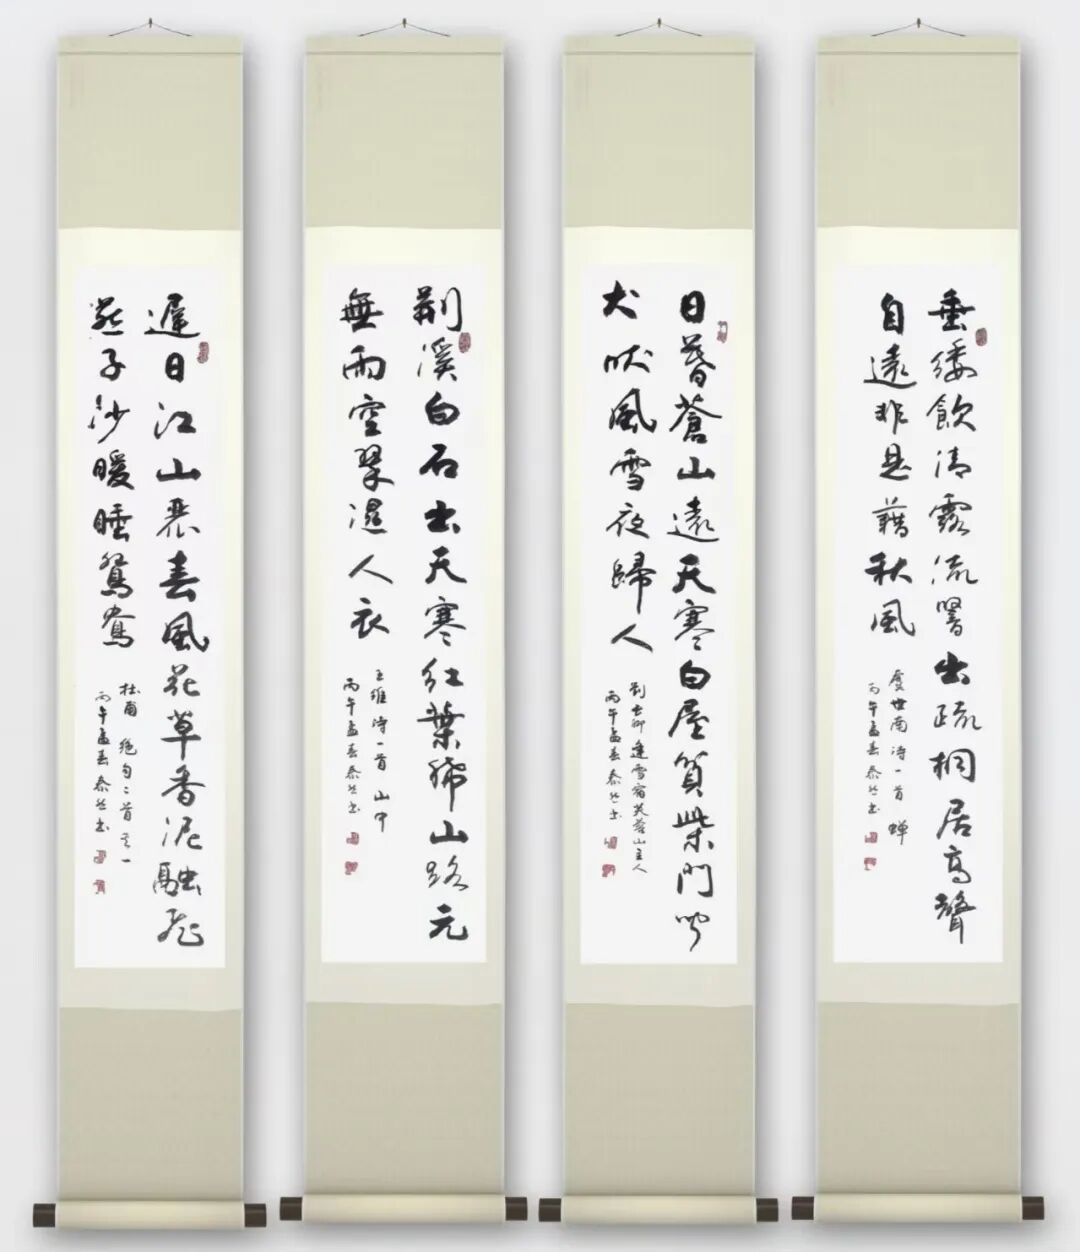 垂緌飲清露流響出疏桐居高聲
自遠非是藉秋風
虞世南诗一首 蟬
丙午孟春泰然书
日暮蒼山遠天寒白屋貧柴門聞
犬吠風雪夜歸人
劉長卿逢雪宿芙蓉山主人
丙午孟春泰然书
荆溪白石出天寒紅葉稀山路元
無雨空翠濕人衣
王維诗一首 山中
丙午孟春泰然书
遲日江山麗春風花草香泥融飛
燕子沙暖睡鴛鴦
杜甫 绝句二首其一
丙午孟春泰然书